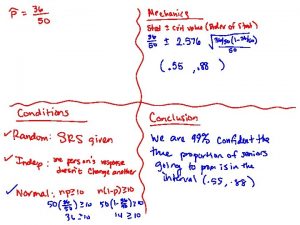 p̂ = 36/50
Mechanics
Stat ± crit value (Stdev of Stat)
36/50 ± 2.576 √(36/50(1-36/50)/50)
(.55, .88)
Conditions
✓Random: SRS given
✓Indep: one person's response
doesn't change another
✓Normal: np≥10 n(1-p)≥10
50(36/50)≥10 50(1-36/50)≥10
36≥10 14≥10
Conclusion
We are 99% confident the
true proportion of seniors
going to prom is in the
interval (.55, .88)